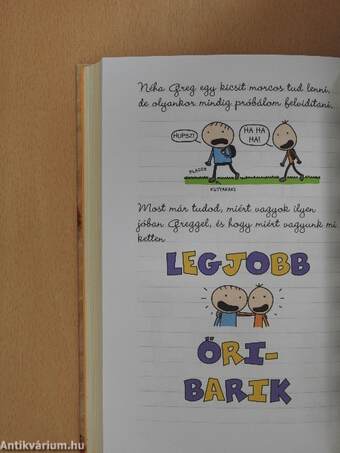 Néha Greg egy kicsit morcos tud lenni,
de olyankor mindig próbálom felvidítani.
HUPSZ!
HA HA
HA!
PLACCS
KUTYAKAKI
Most már tudod, miért vagyok ilyen
jóban Greggel, és hogy miért vagyunk mi
ketten
LEGJOBB
ŐRI-
BARIK
Antikvárium.hu